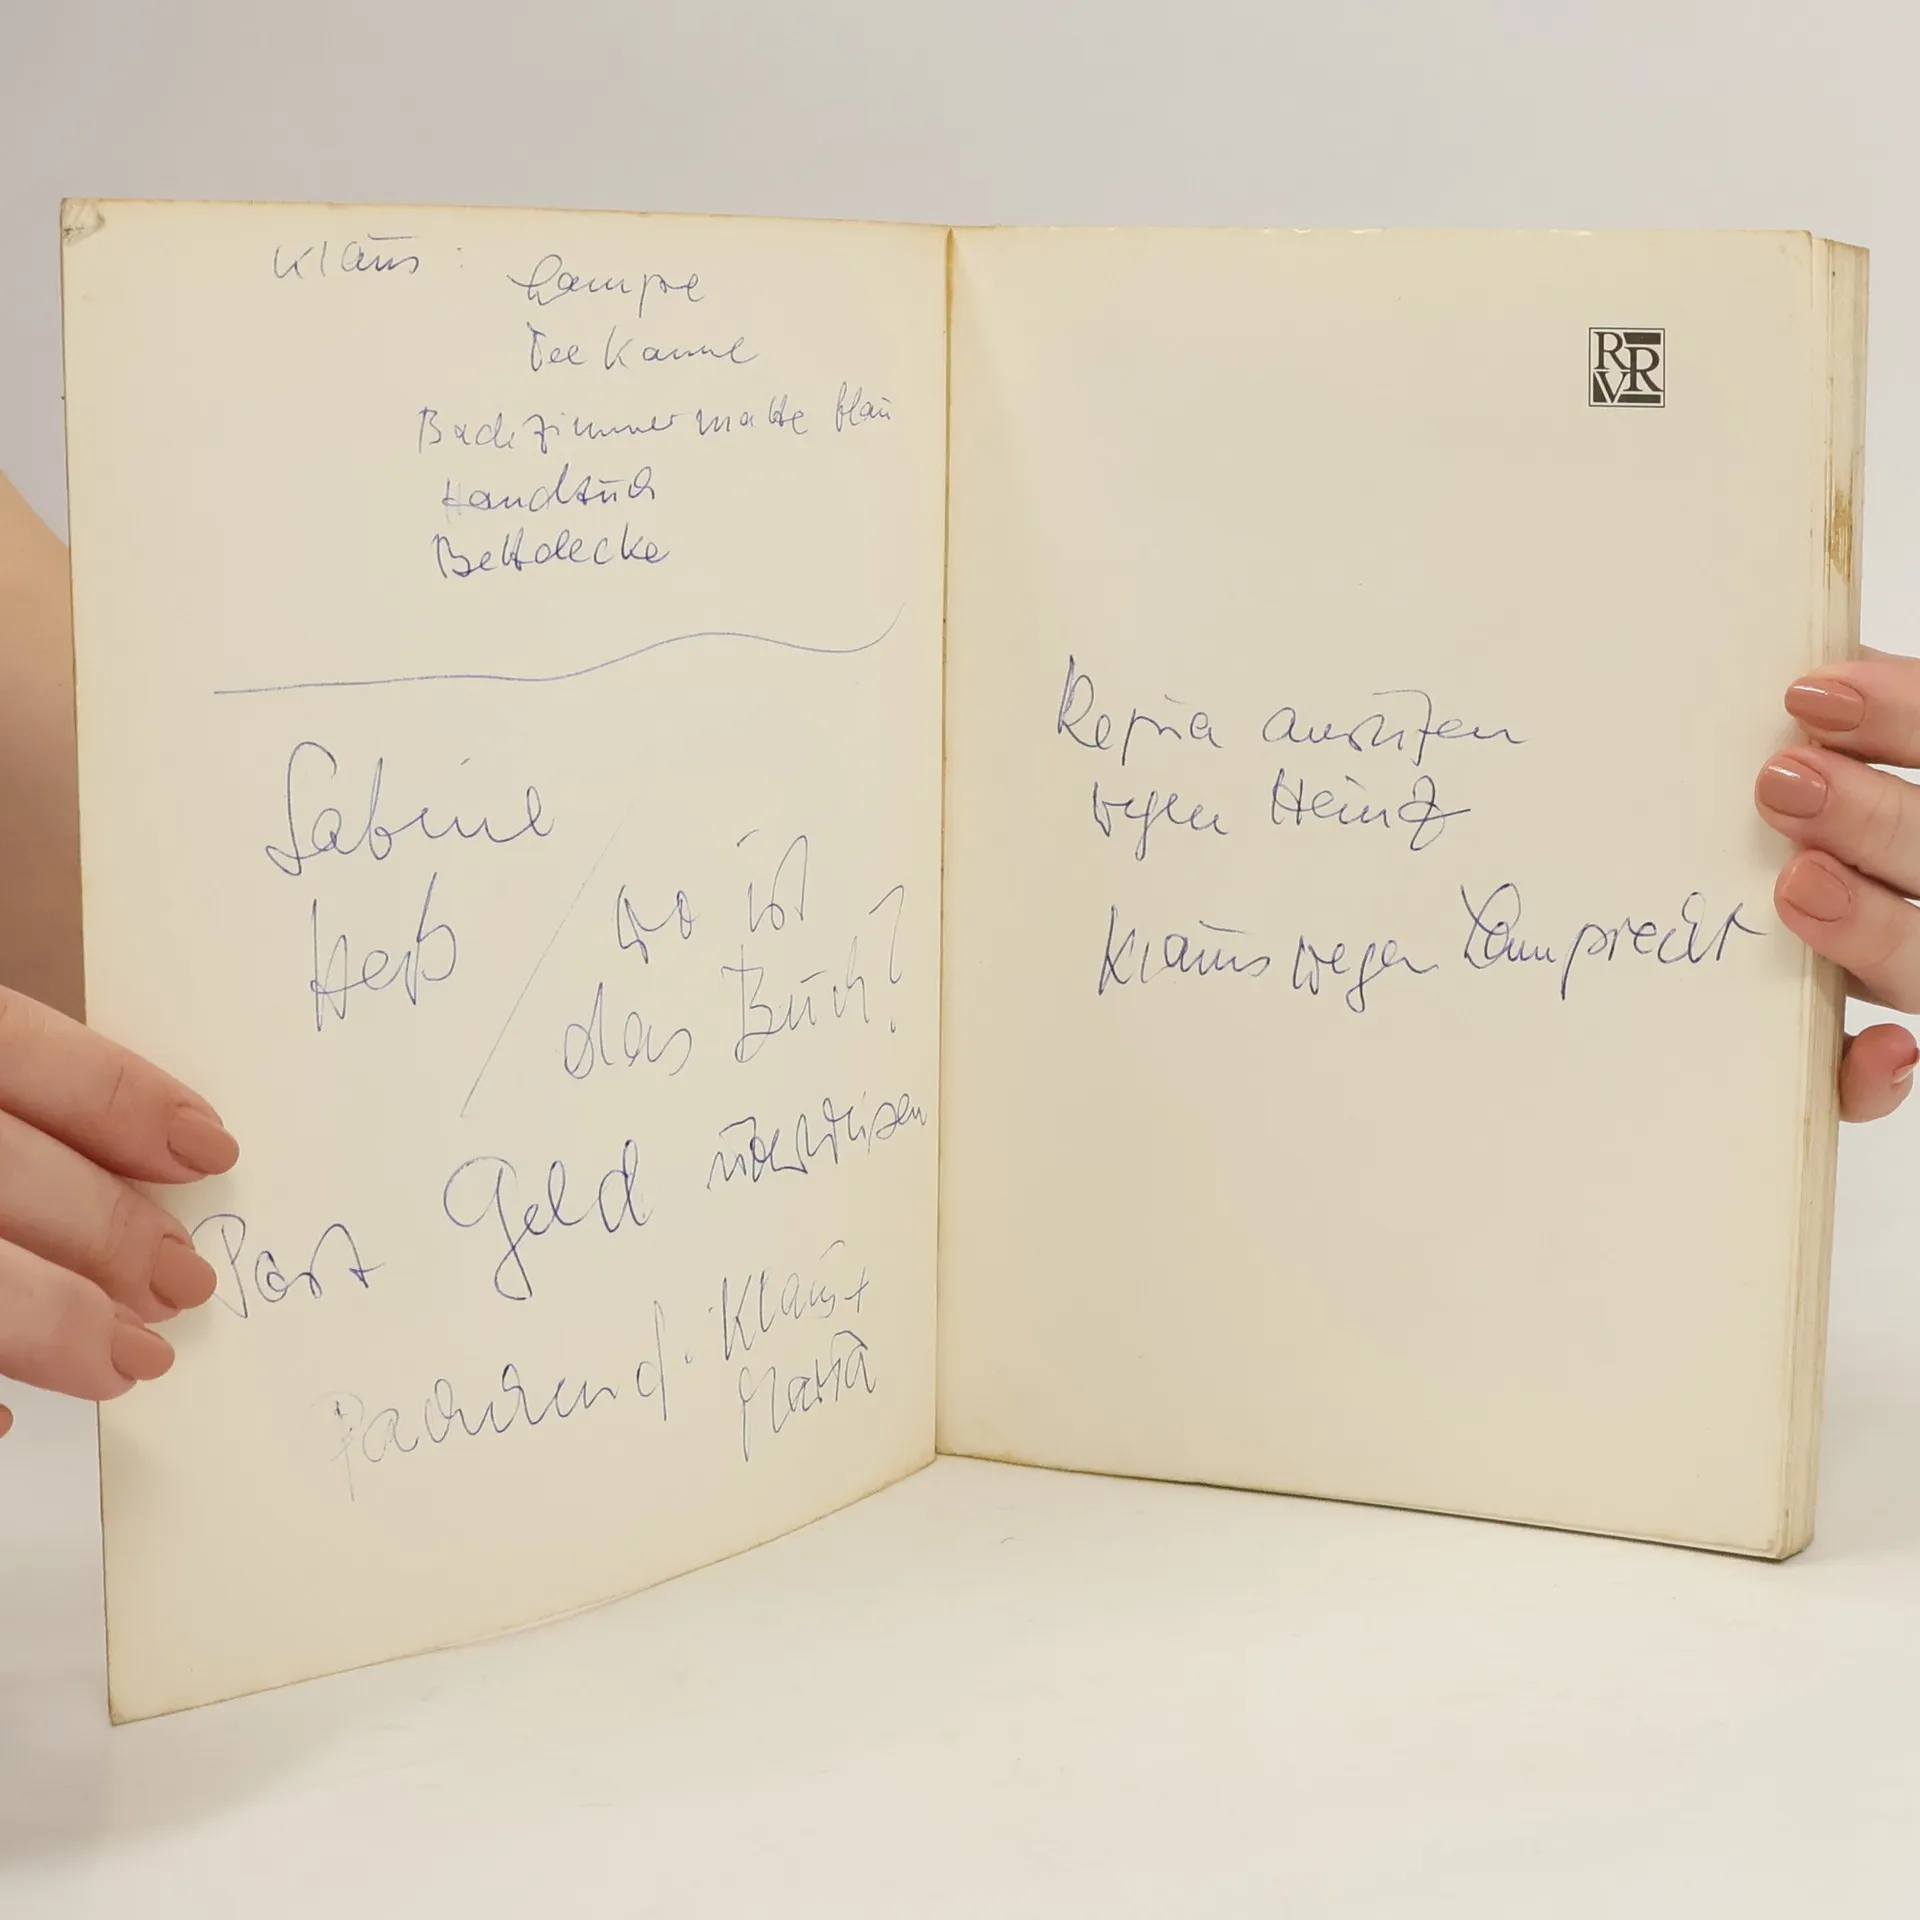 Klaus: Lampe
Tee Kanne
Badezimmermatte blau
Handtuch
Bettdecke
Sabine
Heß / wo ist
das Buch?
Post Geld überweisen
Klaus +
Maria
RVR
Regina anrufen
wegen Heinz
Klaus wegen Lamprecht